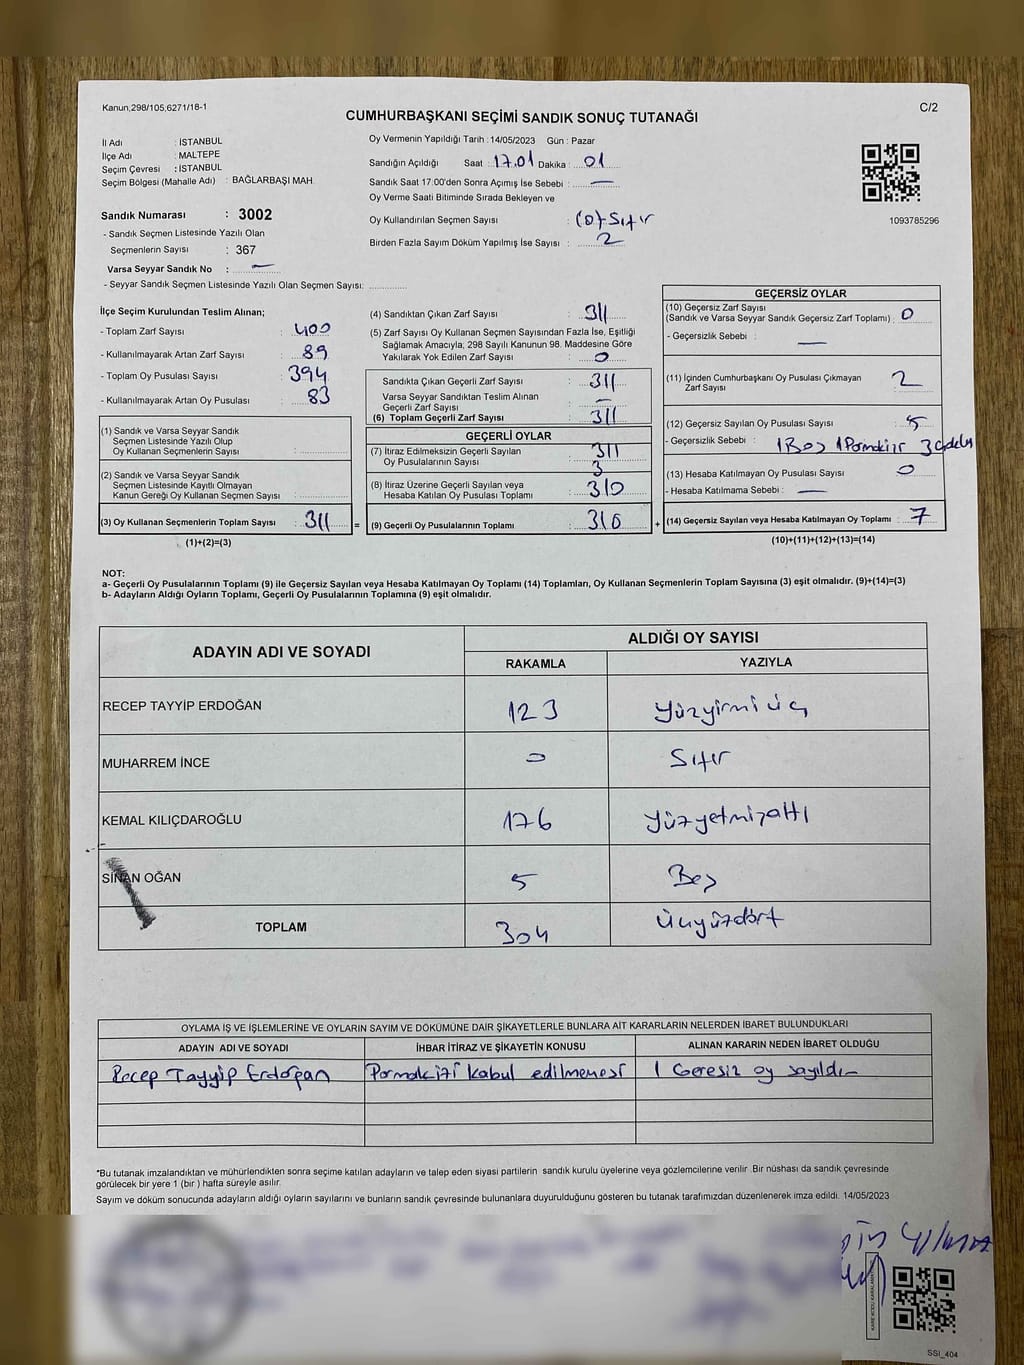 Kanun,298/105,6271/18-1
C/2
CUMHURBAŞKANI SEÇİMİ SANDIK SONUÇ TUTANAĞI
İl Adı : İSTANBUL
İlçe Adı : MALTEPE
Seçim Çevresi : İSTANBUL
Seçim Bölgesi (Mahalle Adı) : BAĞLARBAŞI MAH.
Sandık Numarası : 3002
- Sandık Seçmen Listesinde Yazılı Olan
Seçmenlerin Sayısı : 367
Varsa Seyyar Sandık No : —
- Seyyar Sandık Seçmen Listesinde Yazılı Olan Seçmen Sayısı:
Oy Vermenin Yapıldığı Tarih : 14/05/2023 Gün : Pazar
Sandığın Açıldığı Saat : 17.01 Dakika : 01
Sandık Saat 17:00'den Sonra Açımış İse Sebebi : —
Oy Verme Saati Bitiminde Sırada Bekleyen ve
Oy Kullandırılan Seçmen Sayısı : (0)-Sıfır
Birden Fazla Sayım Döküm Yapılmış İse Sayısı : 2
1093785296
İlçe Seçim Kurulundan Teslim Alınan;
- Toplam Zarf Sayısı : 400
- Kullanılmayarak Artan Zarf Sayısı : 89
- Toplam Oy Pusulası Sayısı : 394
- Kullanılmayarak Artan Oy Pusulası : 83
(1) Sandık ve Varsa Seyyar Sandık
Seçmen Listesinde Yazılı Olup
Oy Kullanan Seçmenlerin Sayısı :
(2) Sandık ve Varsa Seyyar Sandık
Seçmen Listesinde Kayıtlı Olmayan
Kanun Gereği Oy Kullanan Seçmen Sayısı :
(3) Oy Kullanan Seçmenlerin Toplam Sayısı : 311 =
(1)+(2)=(3)
(4) Sandıktan Çıkan Zarf Sayısı : 311
(5) Zarf Sayısı Oy Kullanan Seçmen Sayısından Fazla İse, Eşitliği
Sağlamak Amacıyla; 298 Sayılı Kanunun 98. Maddesine Göre
Yakılarak Yok Edilen Zarf Sayısı : 0
Sandıkta Çıkan Geçerli Zarf Sayısı : 311
Varsa Seyyar Sandıktan Teslim Alınan
Geçerli Zarf Sayısı : —
(6) Toplam Geçerli Zarf Sayısı : 311
GEÇERLİ OYLAR
(7) İtiraz Edilmeksizin Geçerli Sayılan
Oy Pusulalarının Sayısı : 311
3
(8) İtiraz Üzerine Geçerli Sayılan veya
Hesaba Katılan Oy Pusulası Toplamı : 310
(9) Geçerli Oy Pusulalarının Toplamı : 310 +
GEÇERSİZ OYLAR
(10) Geçersiz Zarf Sayısı
(Sandık ve Varsa Seyyar Sandık Geçersiz Zarf Toplamı) : 0
- Geçersizlik Sebebi : —
(11) İçinden Cumhurbaşkanı Oy Pusulası Çıkmayan
Zarf Sayısı : 2
(12) Geçersiz Sayılan Oy Pusulası Sayısı : 5
- Geçersizlik Sebebi : 1 Boş 1 Parmak izi 3
(13) Hesaba Katılmayan Oy Pusulası Sayısı : 0
- Hesaba Katılmama Sebebi : —
(14) Geçersiz Sayılan veya Hesaba Katılmayan Oy Toplamı : 7
(10)+(11)+(12)+(13)=(14)
NOT:
a- Geçerli Oy Pusulalarının Toplamı (9) ile Geçersiz Sayılan veya Hesaba Katılmayan Oy Toplamı (14) Toplamları, Oy Kullanan Seçmenlerin Toplam Sayısına (3) eşit olmalıdır. (9)+(14)=(3)
b- Adayların Aldığı Oyların Toplamı, Geçerli Oy Pusulalarının Toplamına (9) eşit olmalıdır.
ADAYIN ADI VE SOYADI
ALDIĞI OY SAYISI
RAKAMLA YAZIYLA
RECEP TAYYİP ERDOĞAN 123 Yüzyirmi üç
MUHARREM İNCE 0 Sıfır
KEMAL KILIÇDAROĞLU 176 Yüzyetmişaltı
SİNAN OĞAN 5 Beş
TOPLAM 304 Üçyüzdört
OYLAMA İŞ VE İŞLEMLERİNE VE OYLARIN SAYIM VE DÖKÜMÜNE DAİR ŞİKAYETLERLE BUNLARA AİT KARARLARIN NELERDEN İBARET BULUNDUKLARI
ADAYIN ADI VE SOYADI İHBAR İTİRAZ VE ŞİKAYETİN KONUSU ALINAN KARARIN NEDEN İBARET OLDUĞU
Recep Tayyip Erdoğan Parmakizi kabul edilmemesi 1 Geresiz oy sayıldı
*Bu tutanak imzalandıktan ve mühürlendikten sonra seçime katılan adayların ve talep eden siyasi partilerin sandık kurulu üyelerine veya gözlemcilerine verilir .Bir nüshası da sandık çevresinde
görülecek bir yere 1 (bir ) hafta süreyle asılır.
Sayım ve döküm sonucunda adayların aldığı oyların sayılarını ve bunların sandık çevresinde bulunanlara duyurulduğunu gösteren bu tutanak tarafımızdan düzenlenerek imza edildi. 14/05/2023
SSI_404